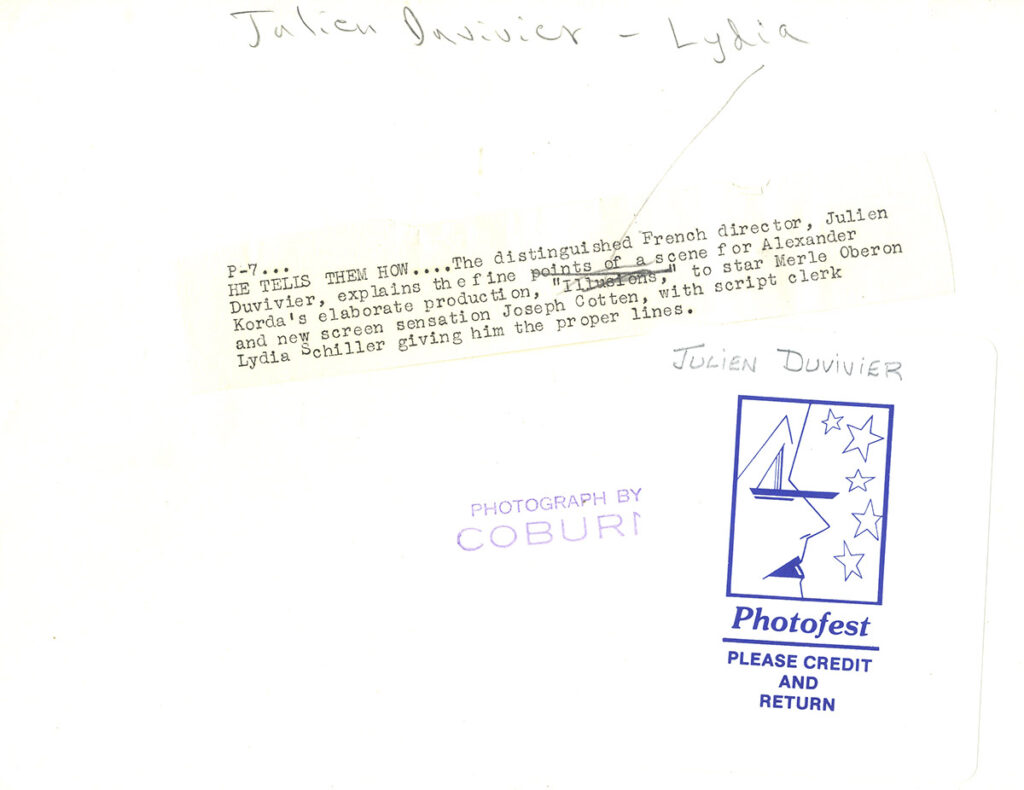 Julien Duvivier - Lydia
P-7...
HE TELLS THEM HOW....The distinguished French director, Julien
Duvivier, explains the fine points of a scene for Alexander
Korda's elaborate production, "Illusions," to star Merle Oberon
and new screen sensation Joseph Cotten, with script clerk
Lydia Schiller giving him the proper lines.
JULIEN DUVIVIER
PHOTOGRAPH BY
COBURN
Photofest
PLEASE CREDIT
AND
RETURN